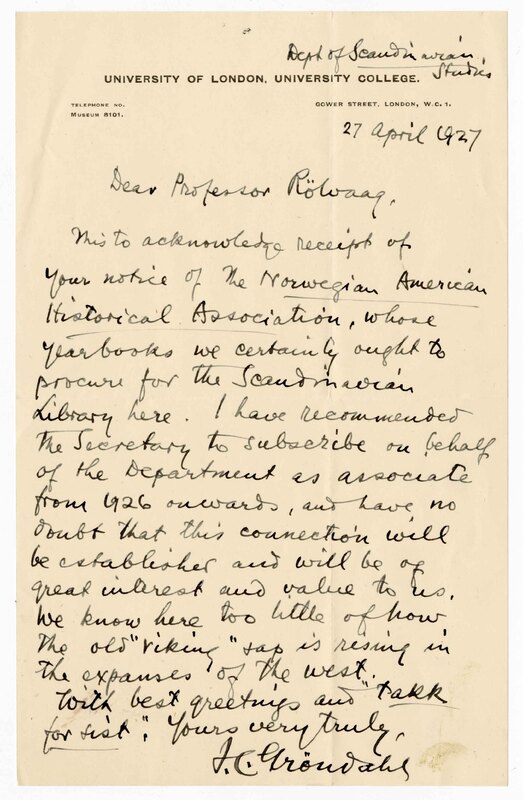 Dept of Scandinavian
Studies
UNIVERSITY OF LONDON, UNIVERSITY COLLEGE.
TELEPHONE NO.
MUSEUM 8101.
GOWER STREET, LONDON, W.C. 1.
27 April 1927
Dear Professor Rölvaag,
This to acknowledge receipt of
your notice of the Norwegian American
Historical Association, whose
yearbooks we certainly ought to
procure for the Scandinavian
Library here. I have recommended
the Secretary to subscribe on behalf
of the Department as associate
from 1926 onwards, and have no
doubt that this connection will
be established and will be of
great interest and value to us.
We know here too little of how
the old "viking" sap is rising in
the expanses of the west.
With best greetings and "takk
for sist". Yours very truly,
I. C. Gröndahl